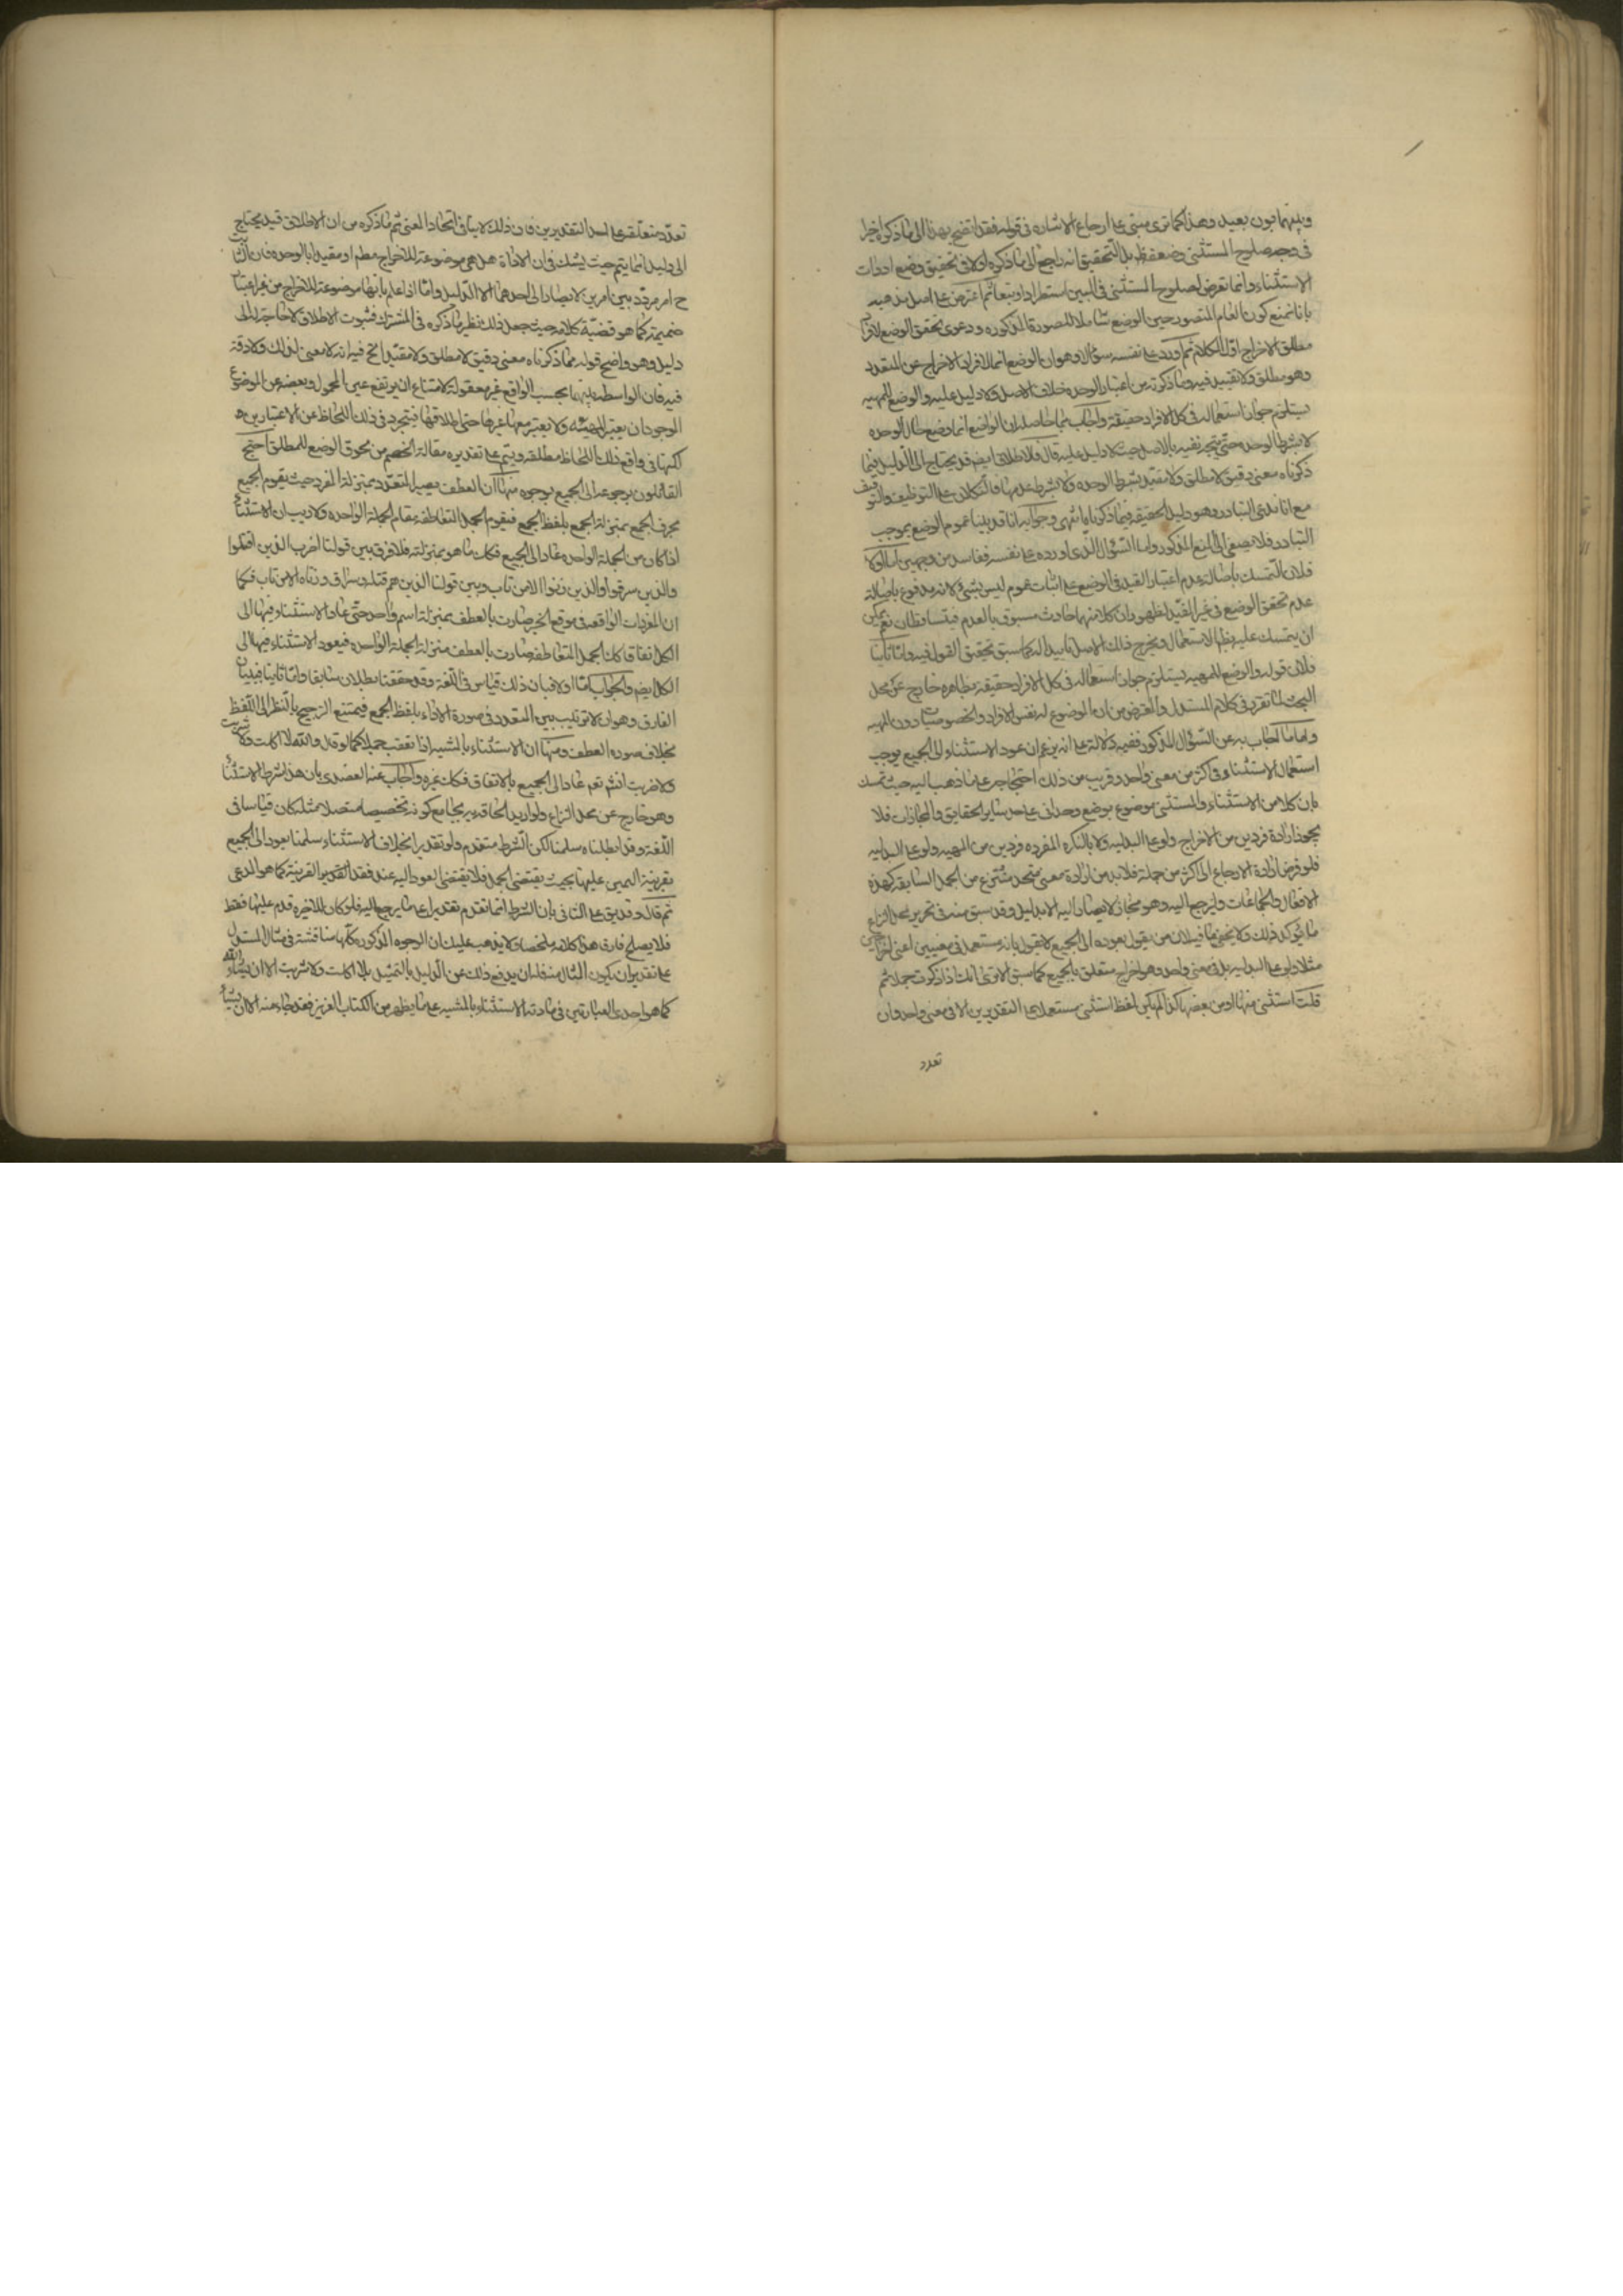 وبينهما بون بعيد وهذا كما ترى مبنى على ارجاع الاشارة فى قوله فقد اتضح بهذا الى ما ذكره اخيرا
فى وجه صلوح المستثنى وضعفه ظ بل التحقيق انه راجع الى ما ذكره اولا فى تحقيق وضع ادوات
الاستثناء وانما تعرض لصلوح المستثنى فى البين استطرادا وتبعا ثم اعترض على اصل مذهبه
بانا نمنع كون العام المتصور حين الوضع شاملا للصورة المذكوره ودعوى تحقق الوضع لافراد
مطلق الاخراج اول الكلام ثم اورد على نفسه سؤالا وهو ان الوضع انما لافراد الاخراج عن المتعدد
وهو مطلق ولا تقييد فيه وما ذكرته من اعتبار الوحده خلاف الاصل ولا دليل عليه والوضع للمهيه
يستلزم جواز استعماله فى كل الافراد حقيقة واجاب بما حاصله ان الواضع انما وضع حال الوحده
لا بشرط الوحده حتى يتجه نفيه بالاصل حيث لا دليل عليه قال فالاطلاق ايضم قد يحتاج الى الدليل فيما
ذكرناه معنى دقيق لا مطلق ولا مقيد بشرط الوحده ولا بشرط عدمها فالتكلان على التوظيف والتوقيف
مع انا ندعى التبادر وهو دليل الحقيقه فيما ذكرنا انتهى وجوابه انا قد بينا عموم الوضع بموجب
التبادر فلا يصغى الى المنع المذكور واما السؤال الذى اورده على نفسه ففاسد من وجهين اما اولا
فلان التمسك باصالة عدم اعتبار القيد فى الوضع على اثبات عموم ليس بشئ لانه مدفوع باصالة
عدم تحقق الوضع فى غير المقيد لظهور ان كلا منهما حادث مسبوق بالعدم فيتساقطان نعم يمكن
ان يتمسك عليه بظ الاستعمال ويخرج ذلك الاصل تاييدا له كما سبق تحقيق القول فيه واما ثانيا
فلان قوله والوضع للمهيه يستلزم جواز استعماله فى كل الافراد حقيقة بظاهره خارج عن محل
البحث لما تقرر فى كلام المستدل والمعترض من ان الموضوع له نفس الافراد والخصوصيات دون المهيه
واما ما اجاب به عن السؤال المذكور ففيه دلالة على انه يزعم ان عود الاستثناء الى الجميع يوجب
استعمال الاستثناء فى اكثر من معنى واحد وقريب من ذلك احتجاجه على ما ذهب اليه حيث تمسك
بان كلا من الاستثناء والمستثنى موضوع بوضع وحدانى على حد ساير الحقايق والمجازات فلا
يجوز ارادة فردين من الاخراج ولو على البدليه ولا بالنكره المفرده فردين من المهيه ولو على البدليه
فلو فرض ارادة الارجاع الى اكثر من جملة فلا بد من ارادة معنى متحد منتزع من الجمل السابقه كهذه
الافعال والجماعات وليرجع اليه وهو مجاز لا يصار اليه الا بدليل وقد سبق منه فى تحرير محل النزاع
ما يؤكد ذلك ولا يخفى ما فيه لان من يقول بعوده الى الجميع لا يقول بانه مستعمل فى معنيين اعنى اخراجين
مثلا ولو على البدليه بل فى معنى واحد وهو اخراج متعلق بالجميع كما سبق الا ترى انك اذا ذكرت جملا ثم
قلت استثنى منها او من بعضها كذا لم يكن لفظ استثنى مستعملا على التقديرين الا فى معنى واحد وان
تعدد
تعدد متعلقه على احد التقديرين فان ذلك لا ينافى اتحاد المعنى ثم ما ذكره من ان الاطلاق قيد يحتاج
الى دليل انما يتم حيث يشك فى ان الاداة هل هى موضوعة للاخراج مطم او مقيدا بالوحده فان الثابت
ح امر مردد بين امرين لا يصار الى احدهما الا لدليل واما اذا علم بانها موضوعة للاخراج من غير اعتبار
ضميمة كما هو قضية كلامه حيث جعل ذلك نظير ما ذكره فى المشترك فثبوت الاطلاق لا حاجة له الى
دليل وهو واضح قوله مما ذكرناه معنى دقيق لا مطلق ولا مقيد الخ فيه انه لا معنى لذلك ولا دقة
فيه فان الواسطه بينهما بحسب الواقع غير معقولة لامتناع ان يرتفع عين المحمول وبعضه عن الموضوع
الوجود ان يعتبر المهيه ولا يعتبر معها غيرها حتى اطلاقها فيتجرد فى ذلك اللحاظ عن الاعتبارين
لكنها فى واقع ذلك اللحاظ مطلقه ويتم على تقديره مقالة الخصم من لحوق الوضع للمطلق احتج
القائلون برجوعه الى الجميع بوجوه منها ان العطف يصير المتعدد بمنزلة المفرد حيث يقوم الجميع
بحرف الجمع بمنزلة الجمع بلفظ الجمع فيقوم الجمل المتعاطفة مقام الجملة الواحده ولا ريب ان الاستثناء
اذا كان من الجملة الواحده عاد الى الجميع فكذا ما هو بمنزلته فلا فرق بين قولنا اضرب الذين قتلوا
والذين سرقوا والذين زنوا الا من تاب وبين قولنا الذين هم قتلة وسراق وزناة الا من تاب فكما
ان المفردات الواقعة فى موقع الخبر صارت بالعطف بمنزلة اسم واحد حتى عاد الاستثناء فيها الى
الكل اتفاقا كذا الجمل المتعاطفه صارت بالعطف منزلة الجملة الواحده فيعود الاستثناء فيها الى
الكل ايضم والجواب اما اولا فبان ذلك قياس فى اللغة وقد حققنا بطلانه سابقا واما ثانيا فببيان
الفارق وهو ان لا ترتيب بين المتعدد فى صورة الاداء بلفظ الجمع فيمتنع الترجيح بالنظر الى اللفظ
بخلاف صوره العطف ومنها ان الاستثناء بالمشيه اذا تعقب جملا كما لو قال والله لا اكلت ولا شربت
ولا ضربت انشم نعم عاد الى الجميع بالاتفاق فكذا غيره واجاب عنه العضدى بان هذا شرط لا استثناء
وهو خارج عن محل النزاع ولو اريد الحاقه به بجامع كونه تخصيصا متصلا مثله كان قياسا فى
اللغة وقد ابطلناه سلمنا لكن الشرط متقدم ولو تقديرا بخلاف الاستثناء سلمنا بعود الى الجميع
بقرينة اليمين عليها بحيث يقتضى الجمل فلا يقتضى العود اليه عند فقد القرينة كما هو المدعى
ثم قال وقد يق على الثانى بان الشرط انما تقدم تقديرا على ما يرجع اليه فلو كان للاخيره قدم عليها فقط
فلا يصلح فارقا هذا كلامه ملخصا ولا يذهب عليك ان الوجوه المذكوره كلها مناقشة فى مثال المستدل
على تقدير ان يكون المثال منه فله ان يدفع ذلك عن الدليل بالتمثيل بلا اكلت ولا شربت الا ان يشاء الله
كما هو احدى العبارتين فى مادة الاستثناء بالمشيه على ما يظهر من الكتاب العزيز فقد جاء منه الا ان يشاء